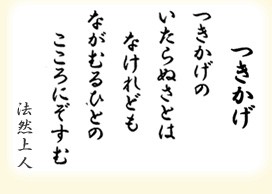 つきかげ
つきかげの
いたらぬさとは
なけれども
ながむるひとの
こころにぞすむ
法然上人